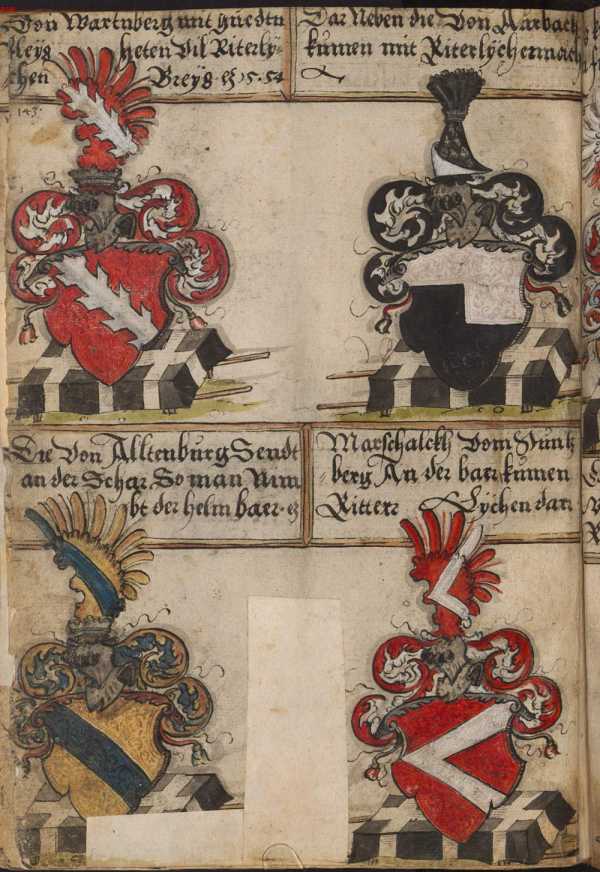 Von Wartnberg mit guedtn
Neyg heten Vil Riterly-
chen Breyß · 15·54
Dar Neben die Von Aarbach
kumen mit Riterlycher mach
143
Die Von Alltenburg Sendt
an der Schar, So man Nim
bt der helm baer
Marschalckh Vom
berg An der baer kumen
Ritterr Lychen dar